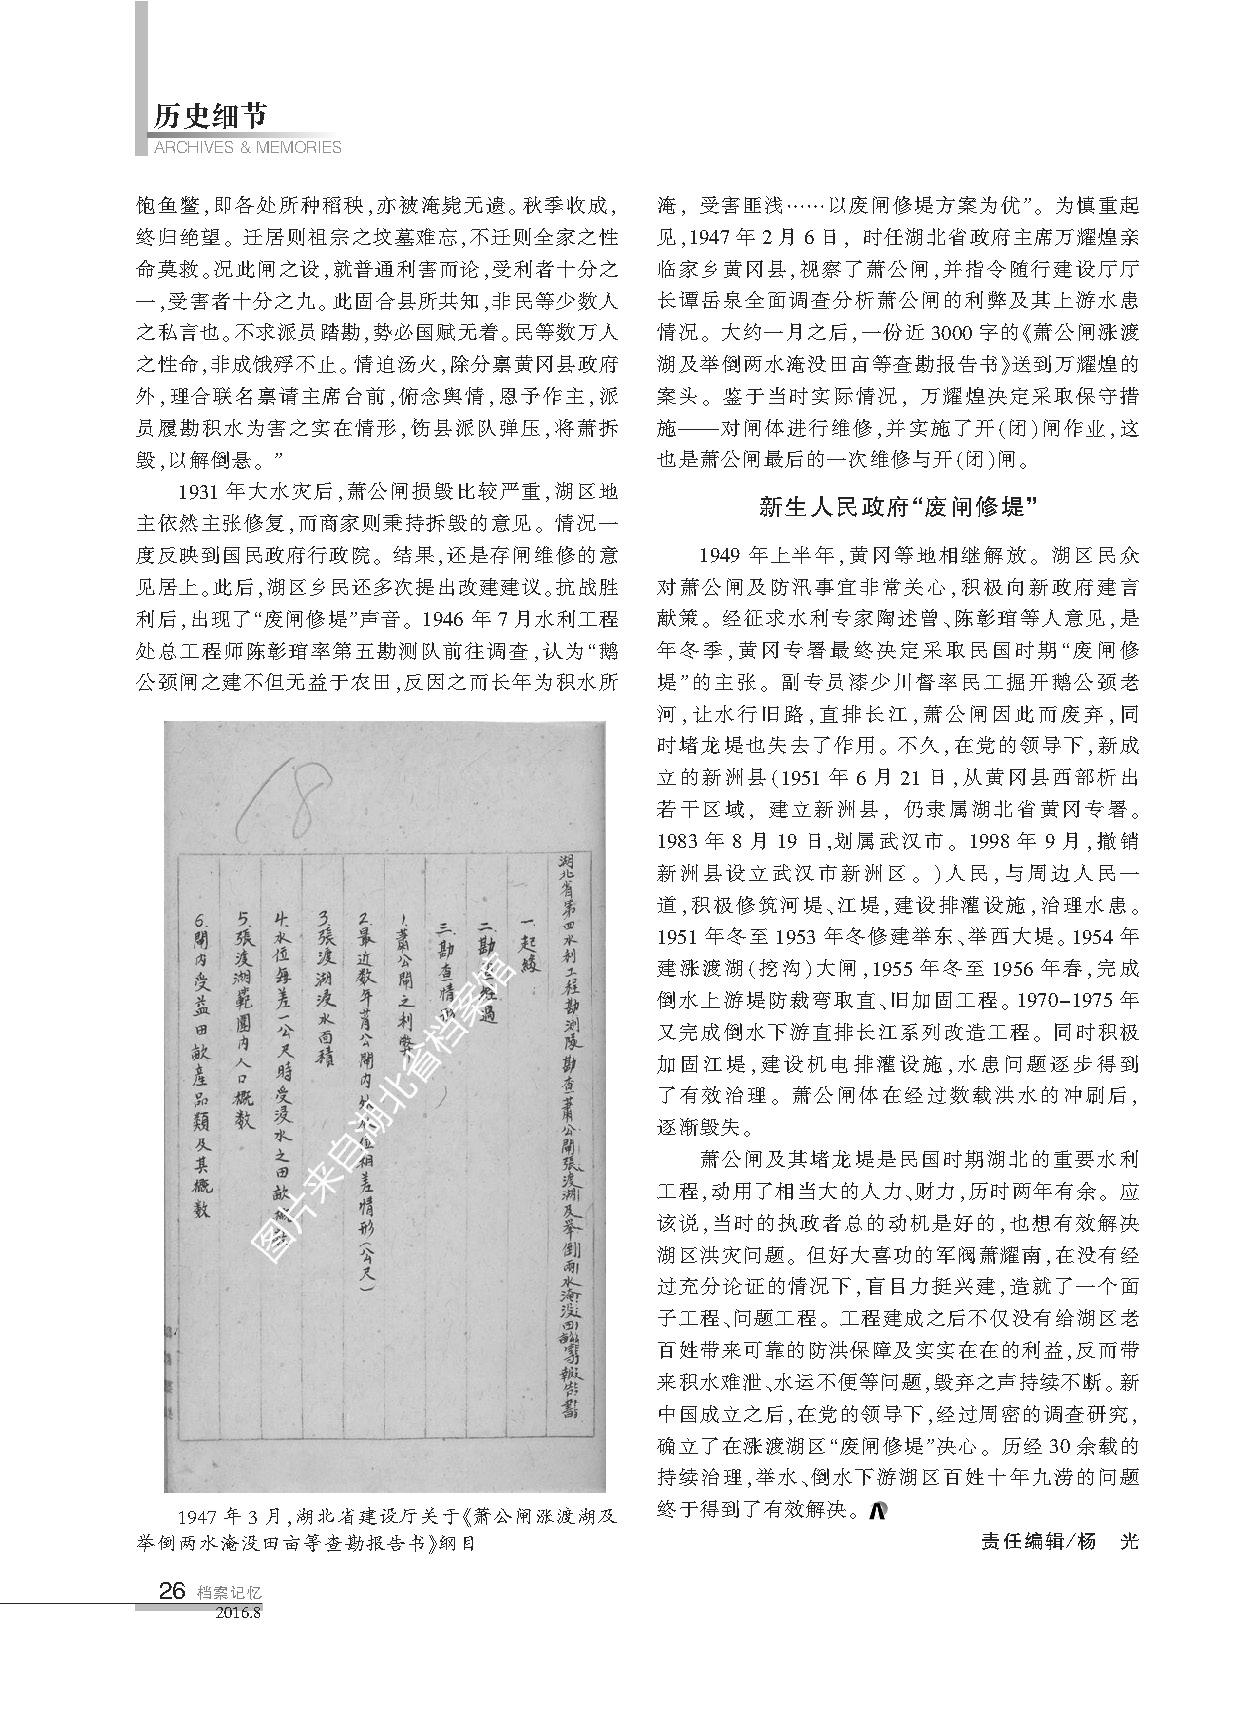 历史细节
ARCHIVES & MEMORIES
饱鱼鳖,即各处所种稻秧,亦被淹毙无遗。秋季收成,
终归绝望。迁居则祖宗之坟墓难忘,不迁则全家之性
命莫救。况此闸之设,就普通利害而论,受利者十分之
一,受害者十分之九。此固合县所共知,非民等少数人
之私言也。不求派员踏勘,势必国赋无着。民等数万人
之性命,非成饿殍不止。情迫汤火,除分禀黄冈县政府
外,理合联名禀请主席台前,俯念舆情,恩予作主,派
员履勘积水为害之实在情形,饬县派队弹压,将萧拆
毁,以解倒悬。”
1931 年大水灾后,萧公闸损毁比较严重,湖区地
主依然主张修复,而商家则秉持拆毁的意见。情况一
度反映到国民政府行政院。结果,还是存闸维修的意
见居上。此后,湖区乡民还多次提出改建建议。抗战胜
利后,出现了“废闸修堤”声音。1946 年 7 月水利工程
处总工程师陈彰琯率第五勘测队前往调查,认为“鹅
公颈闸之建不但无益于农田,反因之而长年为积水所
18
湖北省第四水利工程勘测队勘查萧公閘張渡湖及举倒兩水淹没田畝等報告書
一.起緣:
二.勘查经過
三.勘查情形
1.萧公閘之利弊
2.最近数年萧公閘内外水位相差情形(公尺)
3.張渡湖浸水面積
4.水位每差一公尺時受浸水之田畝概
5.張渡湖範圍内人口概数
6.閘内受益田畝產品類及其概數
图片来自湖北省档案馆
1947 年 3 月,湖北省建设厅关于《萧公闸涨渡湖及
举倒两水淹没田亩等查勘报告书》纲目
淹,受害匪浅……以废闸修堤方案为优”。为慎重起
见,1947 年 2 月 6 日,时任湖北省政府主席万耀煌亲
临家乡黄冈县,视察了萧公闸,并指令随行建设厅厅
长谭岳泉全面调查分析萧公闸的利弊及其上游水患
情况。大约一月之后,一份近 3000 字的《萧公闸涨渡
湖及举倒两水淹没田亩等查勘报告书》送到万耀煌的
案头。鉴于当时实际情况,万耀煌决定采取保守措
施——对闸体进行维修,并实施了开(闭)闸作业,这
也是萧公闸最后的一次维修与开(闭)闸。
新生人民政府“废闸修堤”
1949 年上半年,黄冈等地相继解放。湖区民众
对萧公闸及防汛事宜非常关心,积极向新政府建言
献策。经征求水利专家陶述曾、陈彰琯等人意见,是
年冬季,黄冈专署最终决定采取民国时期“废闸修
堤”的主张。副专员漆少川督率民工掘开鹅公颈老
河,让水行旧路,直排长江,萧公闸因此而废弃,同
时堵龙堤也失去了作用。不久,在党的领导下,新成
立的新洲县(1951 年 6 月 21 日,从黄冈县西部析出
若干区域,建立新洲县,仍隶属湖北省黄冈专署。
1983 年 8 月 19 日,划属武汉市。1998 年 9 月,撤销
新洲县设立武汉市新洲区。)人民,与周边人民一
道,积极修筑河堤、江堤,建设排灌设施,治理水患。
1951 年冬至 1953 年冬修建举东、举西大堤。1954 年
建涨渡湖(挖沟)大闸,1955 年冬至 1956 年春,完成
倒水上游堤防裁弯取直、旧加固工程。1970-1975 年
又完成倒水下游直排长江系列改造工程。同时积极
加固江堤,建设机电排灌设施,水患问题逐步得到
了有效治理。萧公闸体在经过数载洪水的冲刷后,
逐渐毁失。
萧公闸及其堵龙堤是民国时期湖北的重要水利
工程,动用了相当大的人力、财力,历时两年有余。应
该说,当时的执政者总的动机是好的,也想有效解决
湖区洪灾问题。但好大喜功的军阀萧耀南,在没有经
过充分论证的情况下,盲目力挺兴建,造就了一个面
子工程、问题工程。工程建成之后不仅没有给湖区老
百姓带来可靠的防洪保障及实实在在的利益,反而带
来积水难泄、水运不便等问题,毁弃之声持续不断。新
中国成立之后,在党的领导下,经过周密的调查研究,
确立了在涨渡湖区“废闸修堤”决心。历经 30 余载的
持续治理,举水、倒水下游湖区百姓十年九涝的问题
终于得到了有效解决。
责任编辑/杨　光
26 档案记忆
2016.8